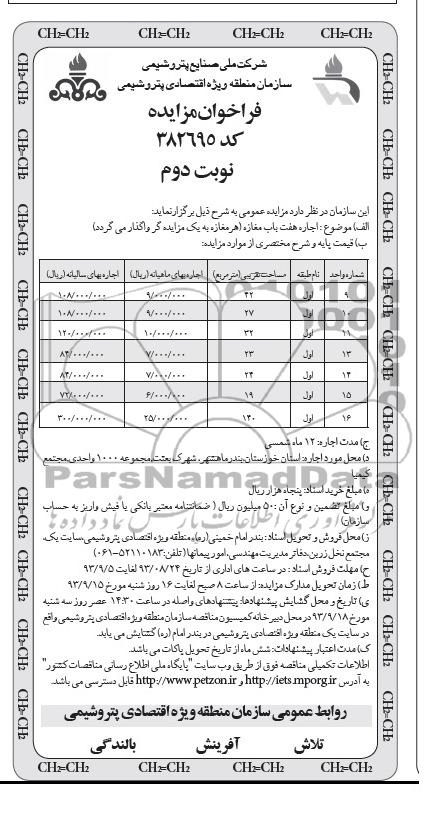 CH2=CH2 CH2=CH2 CH2=CH2 CH2=CH2
شرکت ملی صنایع پتروشیمی
سازمان منطقه ویژه اقتصادی پتروشیمی
فراخوان مزایده
کد ۳۸۲۶۹۵
نوبت دوم
این سازمان در نظر دارد مزایده عمومی به شرح ذیل برگزار نماید:
الف) موضوع : اجاره هفت باب مغازه (هر مغازه به یک مزایده گر واگذار می گردد)
ب) قیمت پایه و شرح مختصری از موارد مزایده:
شماره واحد نام طبقه مساحت تقریبی (متر مربع) اجاره بهای ماهیانه (ریال) اجاره بهای سالیانه (ریال)
۹ اول ۴۲ ۹/۰۰۰/۰۰۰ ۱۰۸/۰۰۰/۰۰۰
۱۰ اول ۲۷ ۹/۰۰۰/۰۰۰ ۱۰۸/۰۰۰/۰۰۰
۱۱ اول ۳۲ ۱۰/۰۰۰/۰۰۰ ۱۲۰/۰۰۰/۰۰۰
۱۳ اول ۲۳ ۷/۰۰۰/۰۰۰ ۸۴/۰۰۰/۰۰۰
۱۴ اول ۲۴ ۷/۰۰۰/۰۰۰ ۸۴/۰۰۰/۰۰۰
۱۵ اول ۱۹ ۶/۰۰۰/۰۰۰ ۷۲/۰۰۰/۰۰۰
۱۶ اول ۱۴۰ ۲۵/۰۰۰/۰۰۰ ۳۰۰/۰۰۰/۰۰۰
ج) مدت اجاره: ۱۲ ماه شمسی
د) محل مورد اجاره: استان خوزستان، بندرماهشهر، شهرک بعثت، مجموعه ۱۰۰۰ واحدی، مجتمع
کیمیا
ه) مبلغ خرید اسناد: پنجاه هزار ریال
و) مبلغ تضمین و نوع آن: ۵۰ میلیون ریال ( ضمانتنامه معتبر بانکی یا فیش واریز به حساب
سازمان)
ز) محل فروش و تحویل اسناد: بندر امام خمینی (ره)، منطقه ویژه اقتصادی پتروشیمی، سایت یک،
مجتمع نخل زرین، دفاتر مدیریت مهندسی، امور پیمانها (تلفن: ۵۲۱۱۰۱۸۳-۰۶۱)
ح) مهلت فروش اسناد : در ساعت های اداری از تاریخ ۹۳/۰۸/۲۴ لغایت ۹۳/۹/۵
ط) زمان تحویل مدارک مزایده: از ساعت ۸ صبح لغایت ۱۶ روز شنبه مورخ ۹۳/۹/۱۵
ی) تاریخ و محل گشایش پیشنهادها: پیشنهادهای واصله در ساعت ۱۴:۳۰ عصر روز سه شنبه
مورخ ۹۳/۹/۱۸ در محل دبیرخانه کمیسیون مناقصه سازمان منطقه ویژه اقتصادی پتروشیمی واقع
در سایت یک منطقه ویژه اقتصادی پتروشیمی در بندر امام (ره) گشایش می یابد.
ک) مدت اعتبار پیشنهادات: شش ماه از تاریخ تحویل پاکات می باشد.
اطلاعات تکمیلی مناقصه فوق از طریق وب سایت "پایگاه ملی اطلاع رسانی مناقصات کشور"
به آدرس http://iets.mporg.ir و http://www.petzon.ir قابل دسترسی می باشد.
روابط عمومی سازمان منطقه ویژه اقتصادی پتروشیمی
تلاش آفرینش بالندگی
CH2=CH2 CH2=CH2 CH2=CH2 CH2=CH2
ParsNamadData